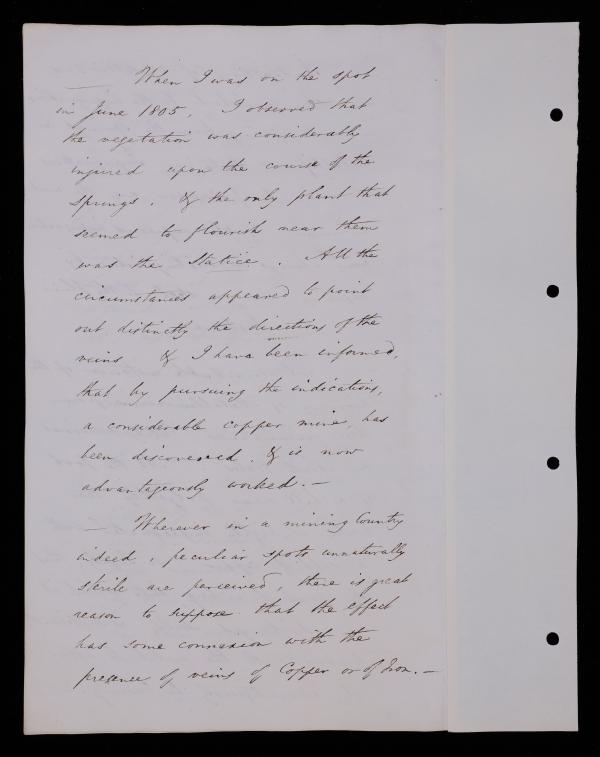 — When I was on the spot
in June 1805, I observed that
the vegetation was considerably
injured upon the course of the
springs. & the only plant that
seemed to flourish near them
was the Statice. All the
circumstances appeared to point
out distinctly the directions of the
veins & I have been informed,
that by pursuing the indications,
a considerable copper mine, has
been discovered. & is now
advantageously worked. —
— Wherever in a mining Country
indeed, peculiar spots unnaturally
sterile are perceived, there is great
reason to suppose that the effect
has some connexion with the
presence of veins of Copper or of Iron. —